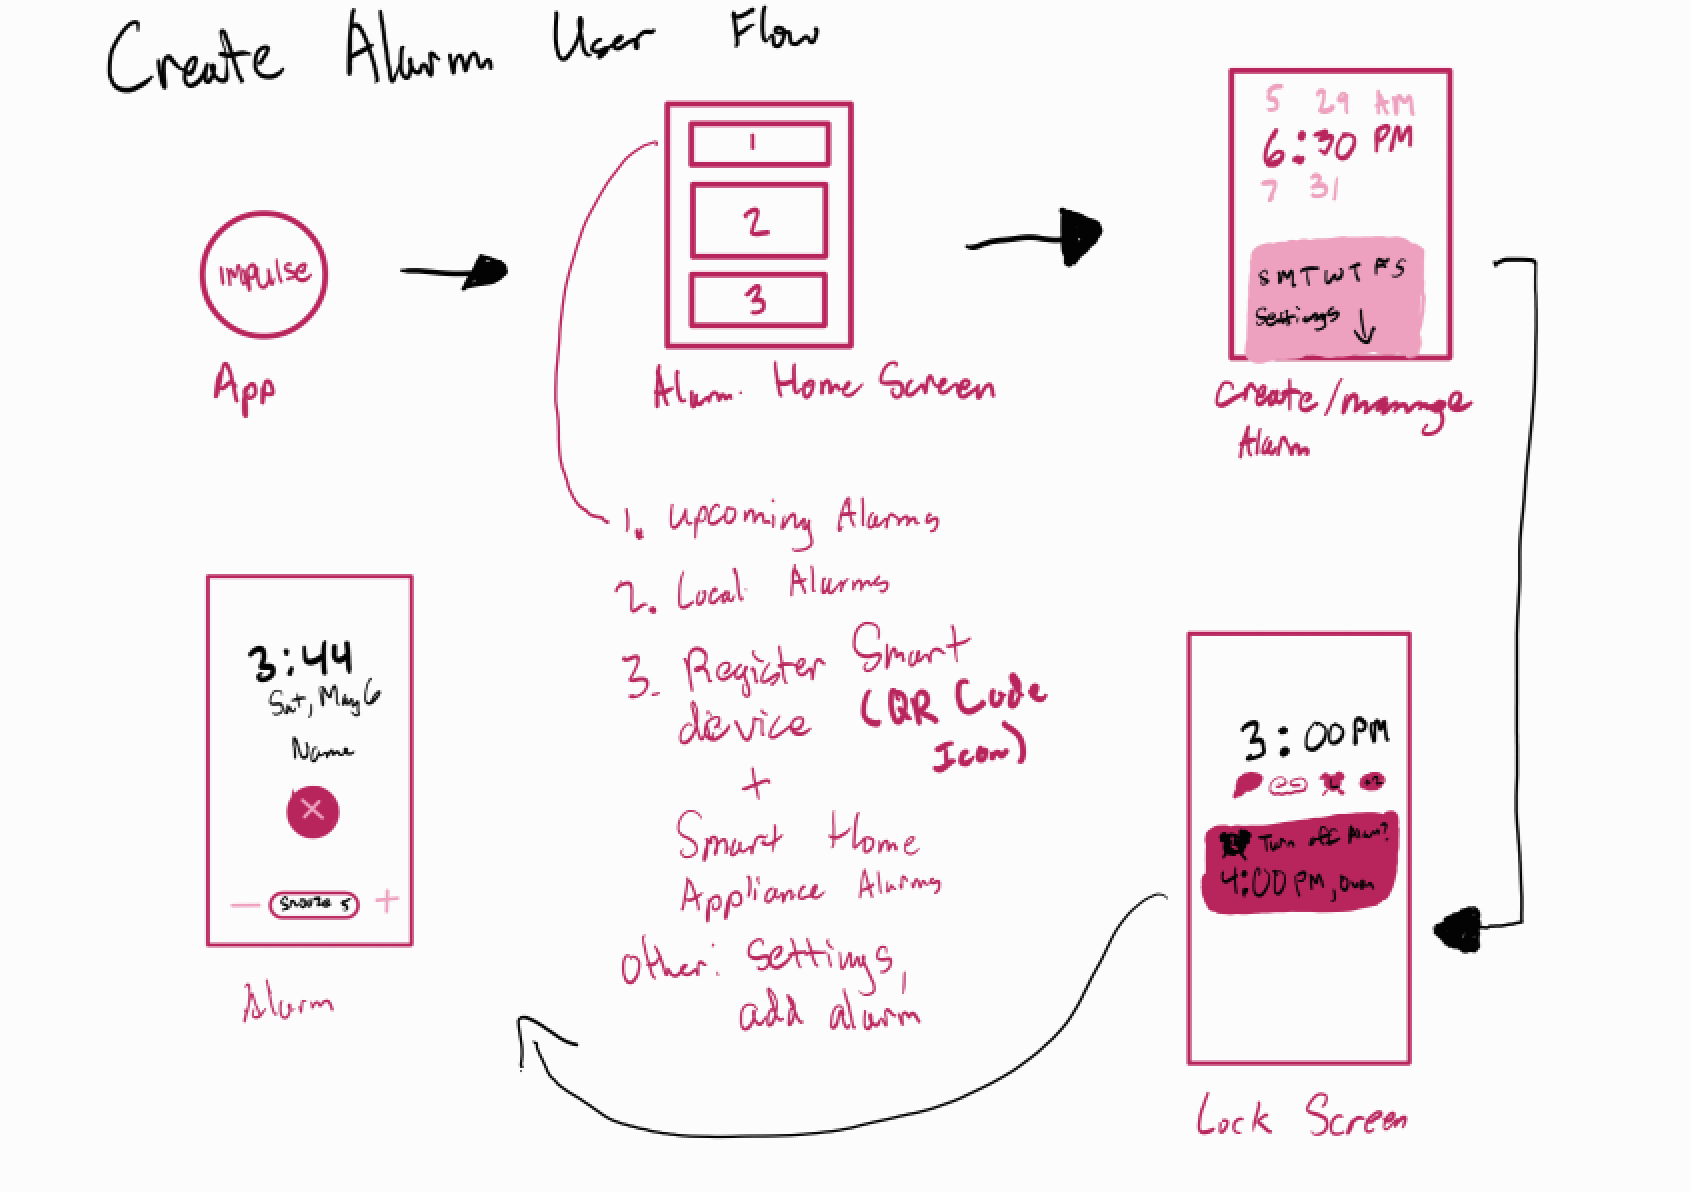 Create Alarm User Flow
Impulse
App
1
2
3
Alarm Home Screen
5 29 AM
6:30 PM
7 31
S M T W T F S
Settings ↓
Create/manage
Alarm
1. Upcoming Alarms
2. Local Alarms
3. Register Smart
device (QR Code
Icon)
+
Smart Home
Appliance Alarms
Other: Settings,
add alarm
3:44
Sat, May 6
Name
X
— Snooze 5 +
Alarm
3:00 PM
+2
Turn off Alarm?
4:00 PM, Oven
Lock Screen